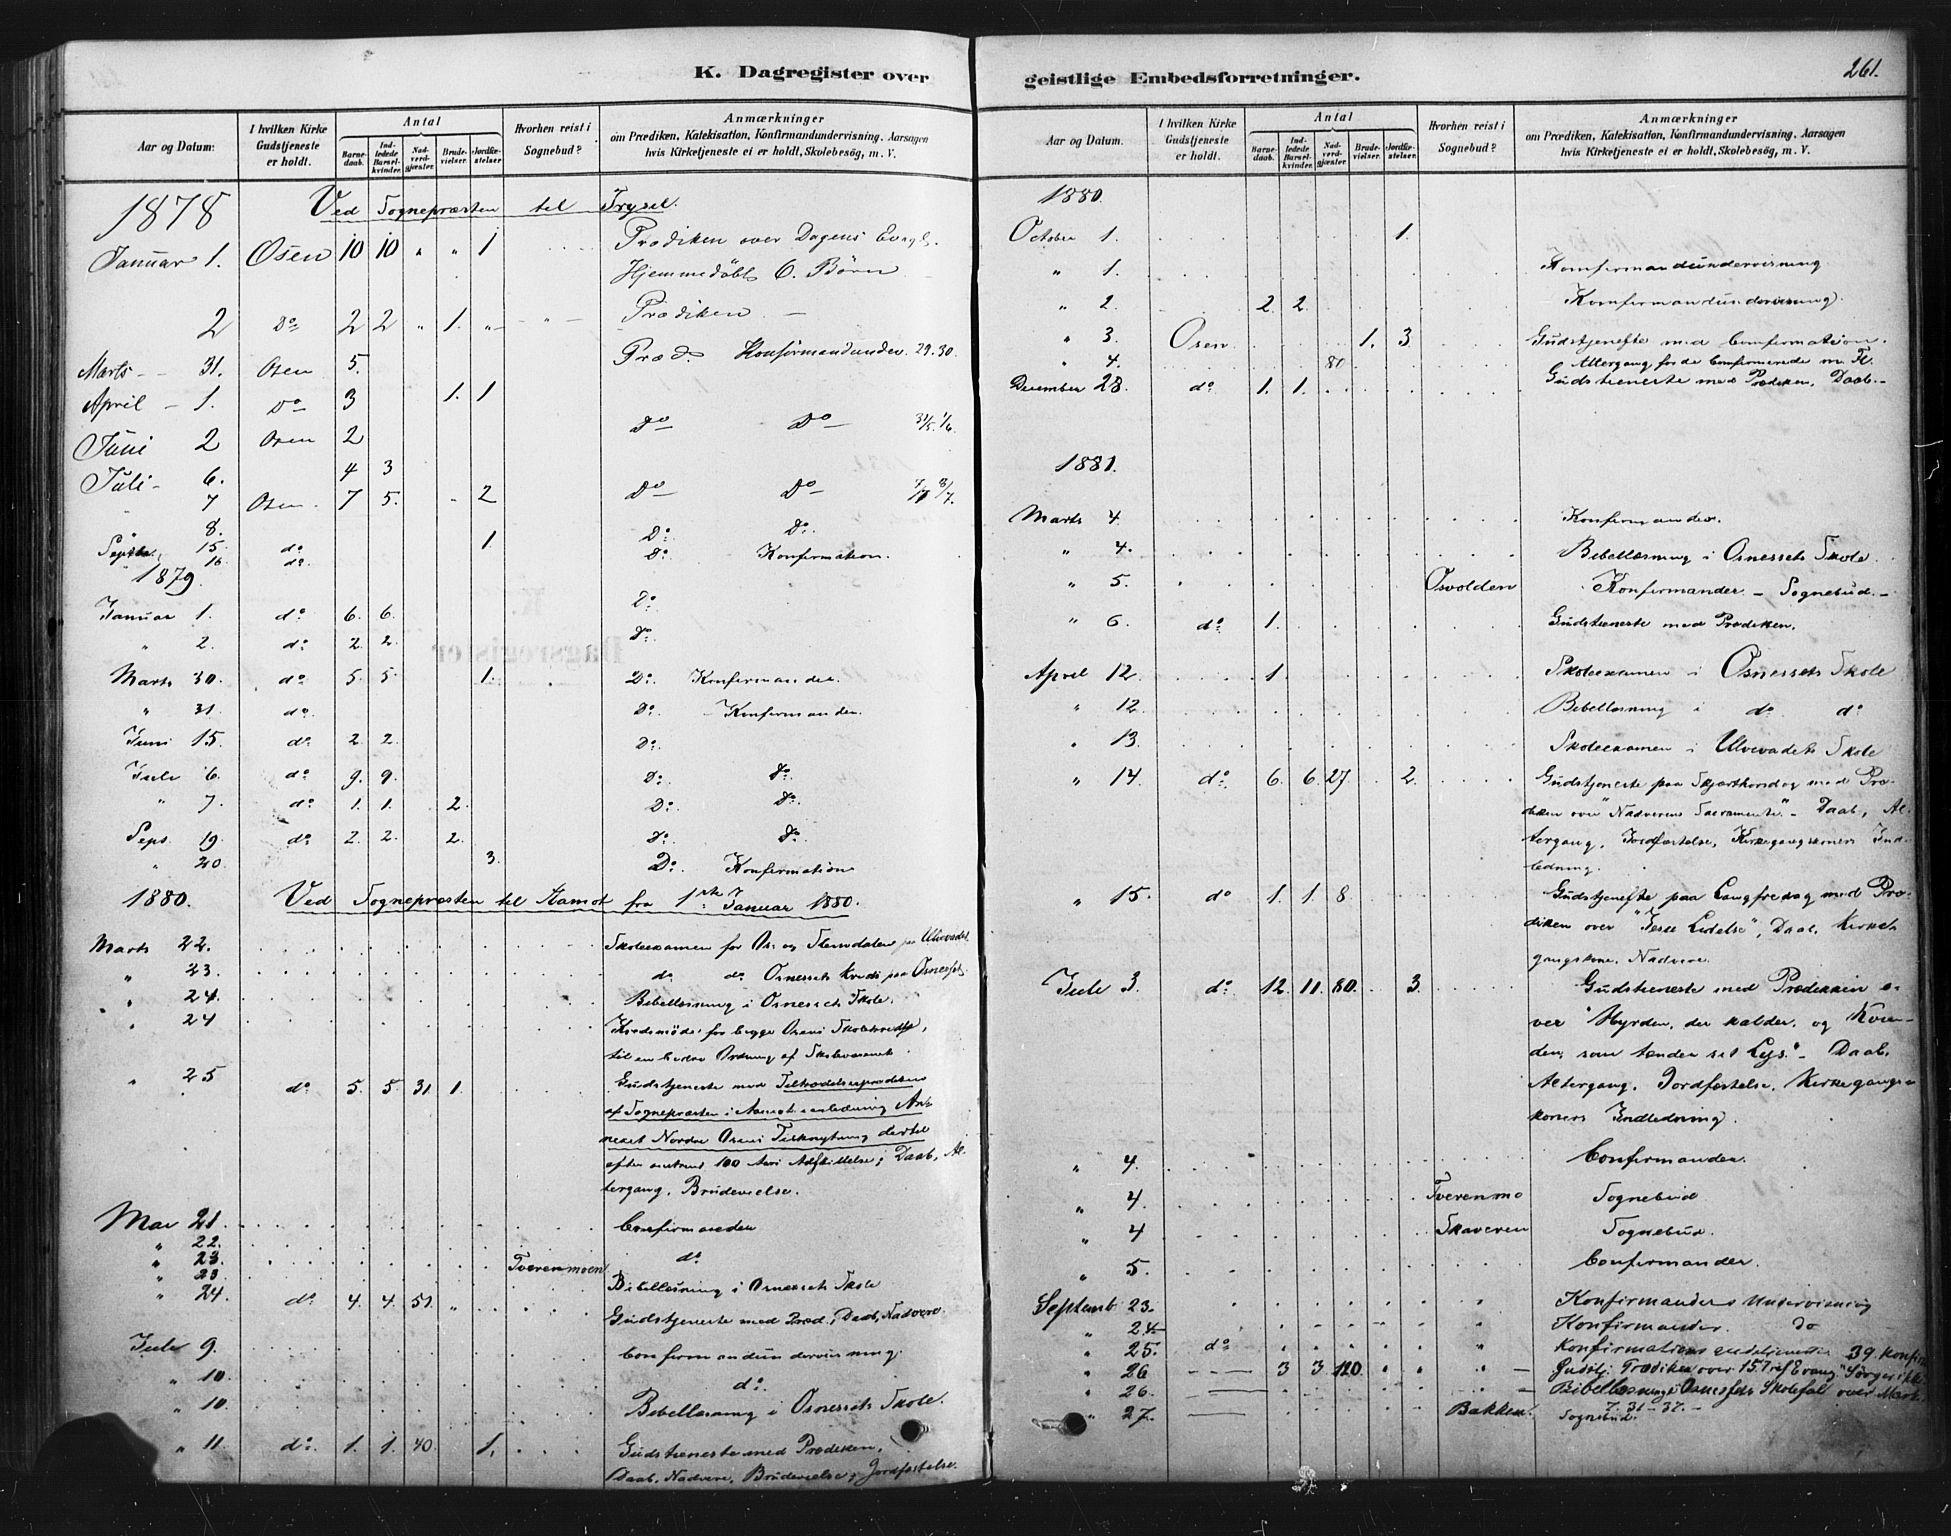 K. Dagregister over
Aar og Datum.
I hvilken Kirke Gudstjeneste er holdt.
Antal
Barnedaab.
Indledede Barselkvinder.
Nadverdgjæster.
Brudevielser.
Jordfæstelser.
Hvorhen reist i Sognebud?
Anmærkninger
om Prædiken, Katekisation, Konfirmandundervisning, Aarsagen
hvis Kirketjeneste ei er holdt, Skolebesøg, m. V.
1878 Ved Sognepræsten til Trysil.
Januar 1. Osen 10 10 " " 1 Prædiken over Dagens Evagl.
Hjemmedöbt 6. Börn
2 Do 2 2 " 1. " Prædiken
Marts 31. Osen 5. Præd. Konfirmandunder. 29.30.
April 1. Do 3 1. 1
Juni 2 Osen 2 Do Do 31/5. 1/6.
Juli 6. 4 3
" 7 Osen. 7 5. 2 Do Do
" 8. Do. Do.
Septbr. 15. do 1. Do. Konfirmation.
" 16. do.
1879.
Januar 1. do 6. 6. Do.
" 2. do. 2. 2. Do.
Marts 30. do 5. 5. 1. Do. Konfirmander.
" 31. do. Do. Konfirmander.
Juni 15. do. 2. 2. Do.
Juli 6. do. 9. 9. Do. Do.
" 7. do. 1. 1. 2. Do. Do.
Sept. 19. do. 2. 2. 2. Do. Do.
" 20. 3. Do. Konfirmation
1880. Ved Sognepræsten til Aamot fra 1ste Januar 1880.
Marts 22. Skoleexamen for Os- og Slemdalen paa Ulvevadet.
" 23. do. do. Osnessets Kreds paa Osnesset.
" 24. Bibellæsning i Osnessets Skole.
" 24 Kredsmöde for begge Osens Skolekredse,
til en bedre Ordning af Skolevæsenet.
" 25 do. 5. 5. 31. 1. Gudstjeneste med Tiltrædelsesprædiken
af Sognepræsten i Aamot i anledning An-
nexet Nordre Osens Tilknytning dertil
efter omtrent 100 Aars Adskillelse; Daab, Al-
tergang, Brudevielse.
Mai 21. Confirmander
" 22. do
" 23. Tverenmoen
" 23 Bibellæsning i Osnessets Skole
" 24. do. 4. 4. 51. " Gudstjeneste med Præd., Daab, Nadvere.
Juli 9. Confirmandundervisning.
" 10. do.
" 10. Bibellæsning i Osnessets Skole.
" 11. do. 1. 1. 40. 1. Gudstjeneste med Prædiken,
Daab, Nadvere, Brudevielse, Jordfæstelse.
geistlige Embedsforretninger.
261.
Aar og Datum.
I hvilken Kirke Gudstjeneste er holdt.
Antal
Barnedaab.
Indledede Barselkvinder.
Nadverdgjæster.
Brudevielser.
Jordfæstelser.
Hvorhen reist i Sognebud?
Anmærkninger
om Prædiken, Katekisation, Konfirmandundervisning, Aarsagen
hvis Kirketjeneste ei er holdt, Skolebesøg, m. V.
1880.
October 1. 1.
" 1. Konfirmandundervisning
" 2. 2. 2. Konfirmandundervisning.
" 3. Osen 1. 3. Gudstjeneste med Confirmation.
" 4. 80. Altergang for de Confirmerede m. Fl.
December 28. do. 1. 1. Gudstjeneste med Prædiken, Daab.
1881.
Marts 4. Konfirmander.
" 4. Bibellæsning i Osnessets Skole
" 5. Osvolden Konfirmander - Sognebud.
" 6. do. 1. Gudstjeneste med Prædiken.
April 12. 1. Skoleexamen i Osnessets Skole
" 12. Bibellæsning i do. do.
" 13. Skoleexamen i Ulvevadets Skole
" 14 do. 6. 6. 27. 2. Gudstjeneste paa Skjærthorsdag med Præ-
diken over "Nadverens Sacramente". Daab, Al-
tergang, Jordfæstelse, Kirkegangskoners Ind-
ledning.
" 15. do 1. 1. 8 Gudstjeneste paa Langfredag med Præ-
diken over "Jesu Lidelse", Daab, Kirke-
gangskone, Nadvere.
Juli 3. do. 12. 11. 80. 3. Gudstjeneste med Prædiken o-
ver "Hyrden, der kalder, og Kvin-
den, som tænder sit Lys." Daab,
Altergang, Jordfæstelse, Kirkegangs-
koners Indledning.
" 4. Confirmander.
" 4 Tverenmo Sognebud
" 4 Skaveren Sognebud.
" 5. Confirmander.
Septemb. 23. Konfirmanders Undervisning
" 24. Konfirmander. do
" 25. do. Konfirmations 39. Konfir
" 26 3 3 120. Gudstj. Prædiken over 15. Evang.
" 26. Bibellæsning i Osnessets over
7. 31-37.
" 27. Bakken. Sognebud.